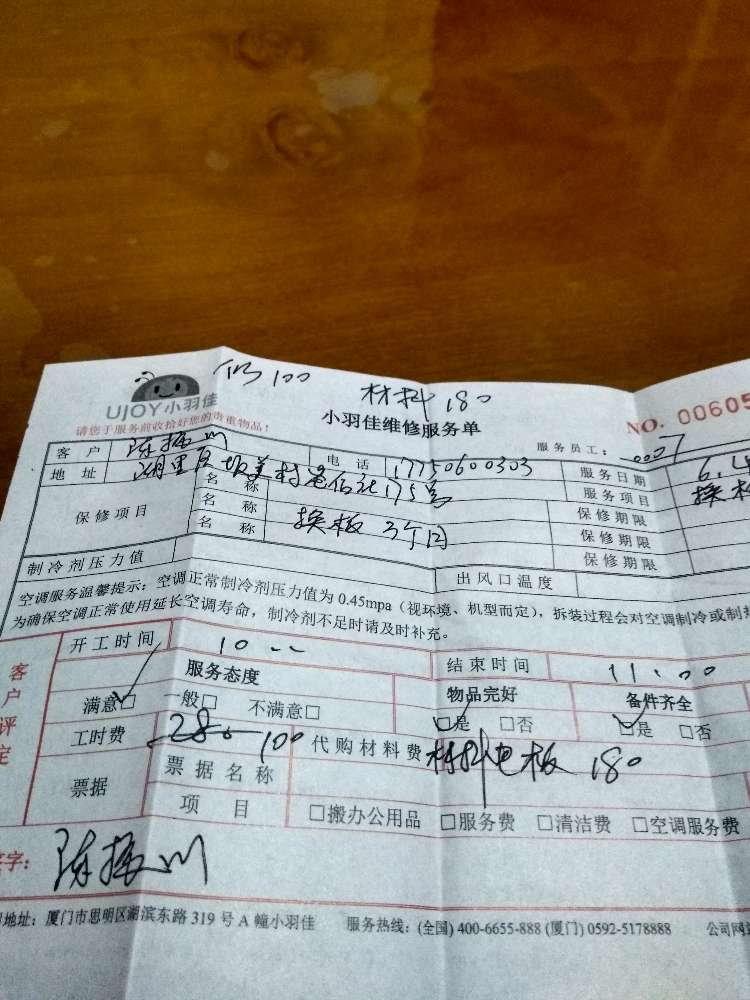 100 材料 180
UJOY小羽佳
小羽佳维修服务单
NO. 00605
请您于服务前收拾好您的贵重物品!
服务员工: 0007
客户 陈振川 电话 17750600303 服务日期 6.
地址 湖里区 175号 服务项目 换板
保修项目 名称 保修期限
名称 换板 3个月 保修期限
名称 保修期限
制冷剂压力值 出风口温度
空调服务温馨提示:空调正常制冷剂压力值为 0.45mpa(视环境、机型而定),拆装过程会对空调制冷或制
为确保空调正常使用延长空调寿命,制冷剂不足时请及时补充。
客户评定
开工时间 10 结束时间 11:00
服务态度 物品完好 备件齐全
满意□ 一般□ 不满意□ □是 □否 □是 □否
工时费 280 100 代购材料费 材料电板 180
票据 票据名称
项目 □搬办公用品 □服务费 □清洁费 □空调服务费
签字: 陈振川
地址:厦门市思明区湖滨东路 319 号 A 幢小羽佳 服务热线:(全国) 400-6655-888 (厦门) 0592-5178888 公司网